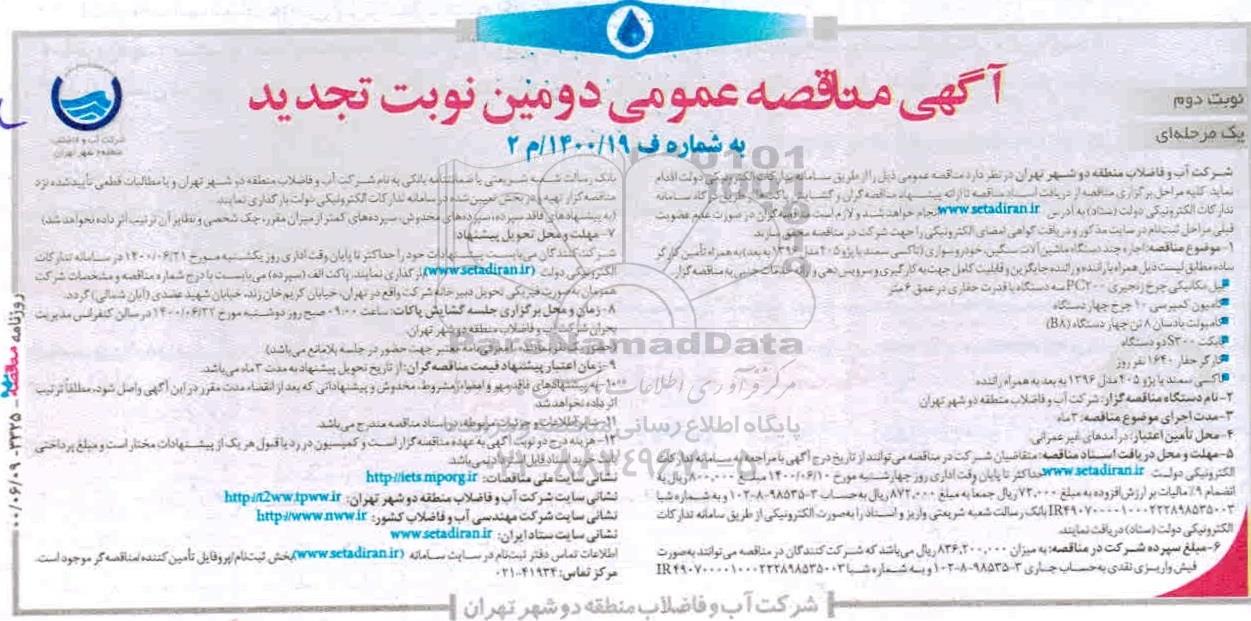 آگهی مناقصه عمومی دومین نوبت تجدید
به شماره ف ۱۴۰۰/۱۹/م ۲
نوبت دوم
یک مرحله‌ای
شرکت آب و فاضلاب
منطقه ۲ شهر تهران
شرکت آب و فاضلاب منطقه دو شهر تهران در نظر دارد مناقصه عمومی ذیل را از طریق سامانه تدارکات الکترونیکی دولت اقدام
نماید. کلیه مراحل برگزاری مناقصه از دریافت اسناد مناقصه تا ارائه پیشنهاد مناقصه گران و گشایش پاکت ها از طریق درگاه سامانه
تدارکات الکترونیکی دولت (ستاد) به آدرس www.setadiran.ir انجام خواهد شد و لازم است مناقصه گران در صورت عدم عضویت
قبلی مراحل ثبت نام در سایت مذکور و دریافت گواهی امضای الکترونیکی را جهت شرکت در مناقصه محقق سازند.
۱- موضوع مناقصه: اجاره چند دستگاه ماشین آلات سنگین، خودرو سواری (تاکسی سمند یا پژو ۴۰۵ مدل ۱۳۹۶ به بعد) به همراه تأمین کارگر
ساده مطابق لیست ذیل همراه با راننده و راننده جایگزین و قابلیت کامل جهت به کارگیری و سرویس دهی و ارائه خدمات جنبی به مناقصه گزار.
بیل مکانیکی چرخ زنجیری PC۲۰۰ سه دستگاه با قدرت حفاری در عمق ۶ متر
کامیون کمپرسی ۱۰ چرخ چهار دستگاه
کامیونت بادسان ۸ تن چهار دستگاه (B۸)
بابکت S۳۰۰ دو دستگاه
کارگر حفار ۱۶۴۰ نفر روز
تاکسی سمند یا پژو ۴۰۵ مدل ۱۳۹۶ به بعد به همراه راننده
۲- نام دستگاه مناقصه گزار: شرکت آب و فاضلاب منطقه دو شهر تهران
۳- مدت اجرای موضوع مناقصه: ۳ ماه
۴- محل تأمین اعتبار: درآمدهای غیر عمرانی
۵- مهلت و محل دریافت اسناد مناقصه: متقاضیان شرکت در مناقصه می توانند از تاریخ درج آگهی با مراجعه به سامانه تدارکات
الکترونیکی دولت www.setadiran.ir حداکثر تا پایان وقت اداری روز چهارشنبه مورخ ۱۴۰۰/۰۶/۱۰ مبلغ ۸۰۰,۰۰۰ ریال به
انضمام ۹٪ مالیات بر ارزش افزوده به مبلغ ۷۲,۰۰۰ ریال جمعاً به مبلغ ۸۷۲,۰۰۰ ریال به حساب ۳-۹۸۵۳۵-۸-۱۰۲ و به شماره شبا
IR۴۹۰۷۰۰۰۰۱۰۰۰۲۲۲۸۹۸۵۳۵۰۰۳ بانک رسالت شعبه شریعتی واریز و اسناد را به صورت الکترونیکی از طریق سامانه تدارکات
الکترونیکی دولت (ستاد) دریافت نمایند.
۶- مبلغ سپرده شرکت در مناقصه: به میزان ۸۳۶,۲۰۰,۰۰۰ ریال می باشد که شرکت کنندگان در مناقصه می توانند به صورت
فیش واریزی نقدی به حساب جاری ۳-۹۸۵۳۵-۸-۱۰۲ و به شماره شبا IR۴۹۰۷۰۰۰۰۱۰۰۰۲۲۲۸۹۸۵۳۵۰۰۳
بانک رسالت شعبه شریعتی یا ضمانتنامه بانکی به نام شرکت آب و فاضلاب منطقه دو شهر تهران و یا مطالبات قطعی تأیید شده نزد
مناقصه گزار تهیه و در بخش تعیین شده در سامانه تدارکات الکترونیکی دولت بارگذاری نمایند.
(به پیشنهادهای فاقد سپرده، سپرده های مخدوش، سپرده های کمتر از میزان مقرر، چک شخصی و نظایر آن ترتیب اثر داده نخواهد شد)
۷- مهلت و محل تحویل پیشنهاد
شرکت کنندگان می بایست پیشنهادات خود را حداکثر تا پایان وقت اداری روز یکشنبه مورخ ۱۴۰۰/۰۶/۲۱ در سامانه تدارکات
الکترونیکی دولت (www.setadiran.ir) بارگذاری نمایند. پاکت الف (سپرده) می بایست با درج شماره مناقصه و مشخصات شرکت
همزمان به صورت فیزیکی تحویل دبیرخانه شرکت واقع در تهران، خیابان کریم خان زند، خیابان شهید عضدی (آبان شمالی) گردد.
۸- زمان و محل برگزاری جلسه گشایش پاکات: ساعت ۰۹:۰۰ صبح روز دوشنبه مورخ ۱۴۰۰/۰۶/۲۲ در سالن کنفرانس مدیریت
بحران شرکت آب و فاضلاب منطقه دو شهر تهران.
(حضور یک نفر نماینده با معرفی نامه معتبر جهت حضور در جلسه بلامانع می باشد)
۹- زمان اعتبار پیشنهاد قیمت مناقصه گران: از تاریخ تحویل پیشنهاد به مدت ۳ ماه می باشد.
۱۰- به پیشنهادهای فاقد مهر و امضاء، مشروط، مخدوش و پیشنهاداتی که بعد از انقضاء مدت مقرر در این آگهی واصل شود، مطلقاً ترتیب
اثر داده نخواهد شد.
۱۱- سایر اطلاعات و جزئیات مربوطه در اسناد مناقصه مندرج می باشد.
۱۲- هزینه درج دو نوبت آگهی به عهده مناقصه گزار است و کمیسیون در رد یا قبول هر یک از پیشنهادات مختار است و مبلغ پرداختی
بابت خرید اسناد قابل استرداد نمی باشد.
نشانی سایت ملی مناقصات: http://iets.mporg.ir
نشانی سایت شرکت آب و فاضلاب منطقه دو شهر تهران: http://t2ww.tpww.ir
نشانی سایت شرکت مهندسی آب و فاضلاب کشور: http://www.nww.ir
نشانی سایت ستاد ایران: www.setadiran.ir
اطلاعات تماس دفتر ثبت نام در سایت سامانه (www.setadiran.ir) بخش ثبت نام/پروفایل تأمین کننده/مناقصه گر موجود است.
مرکز تماس: ۴۱۹۳۴-۰۲۱
شرکت آب و فاضلاب منطقه دو شهر تهران
روزنامه مناقصه - ۳۳۲۵ - ۰۰/۰۶/۰۹
ParsNamadData
مرکز فرآوری اطلاعات
پایگاه اطلاع رسانی
۰۲۱-۸۸۳۴۹۶۷۰-۵